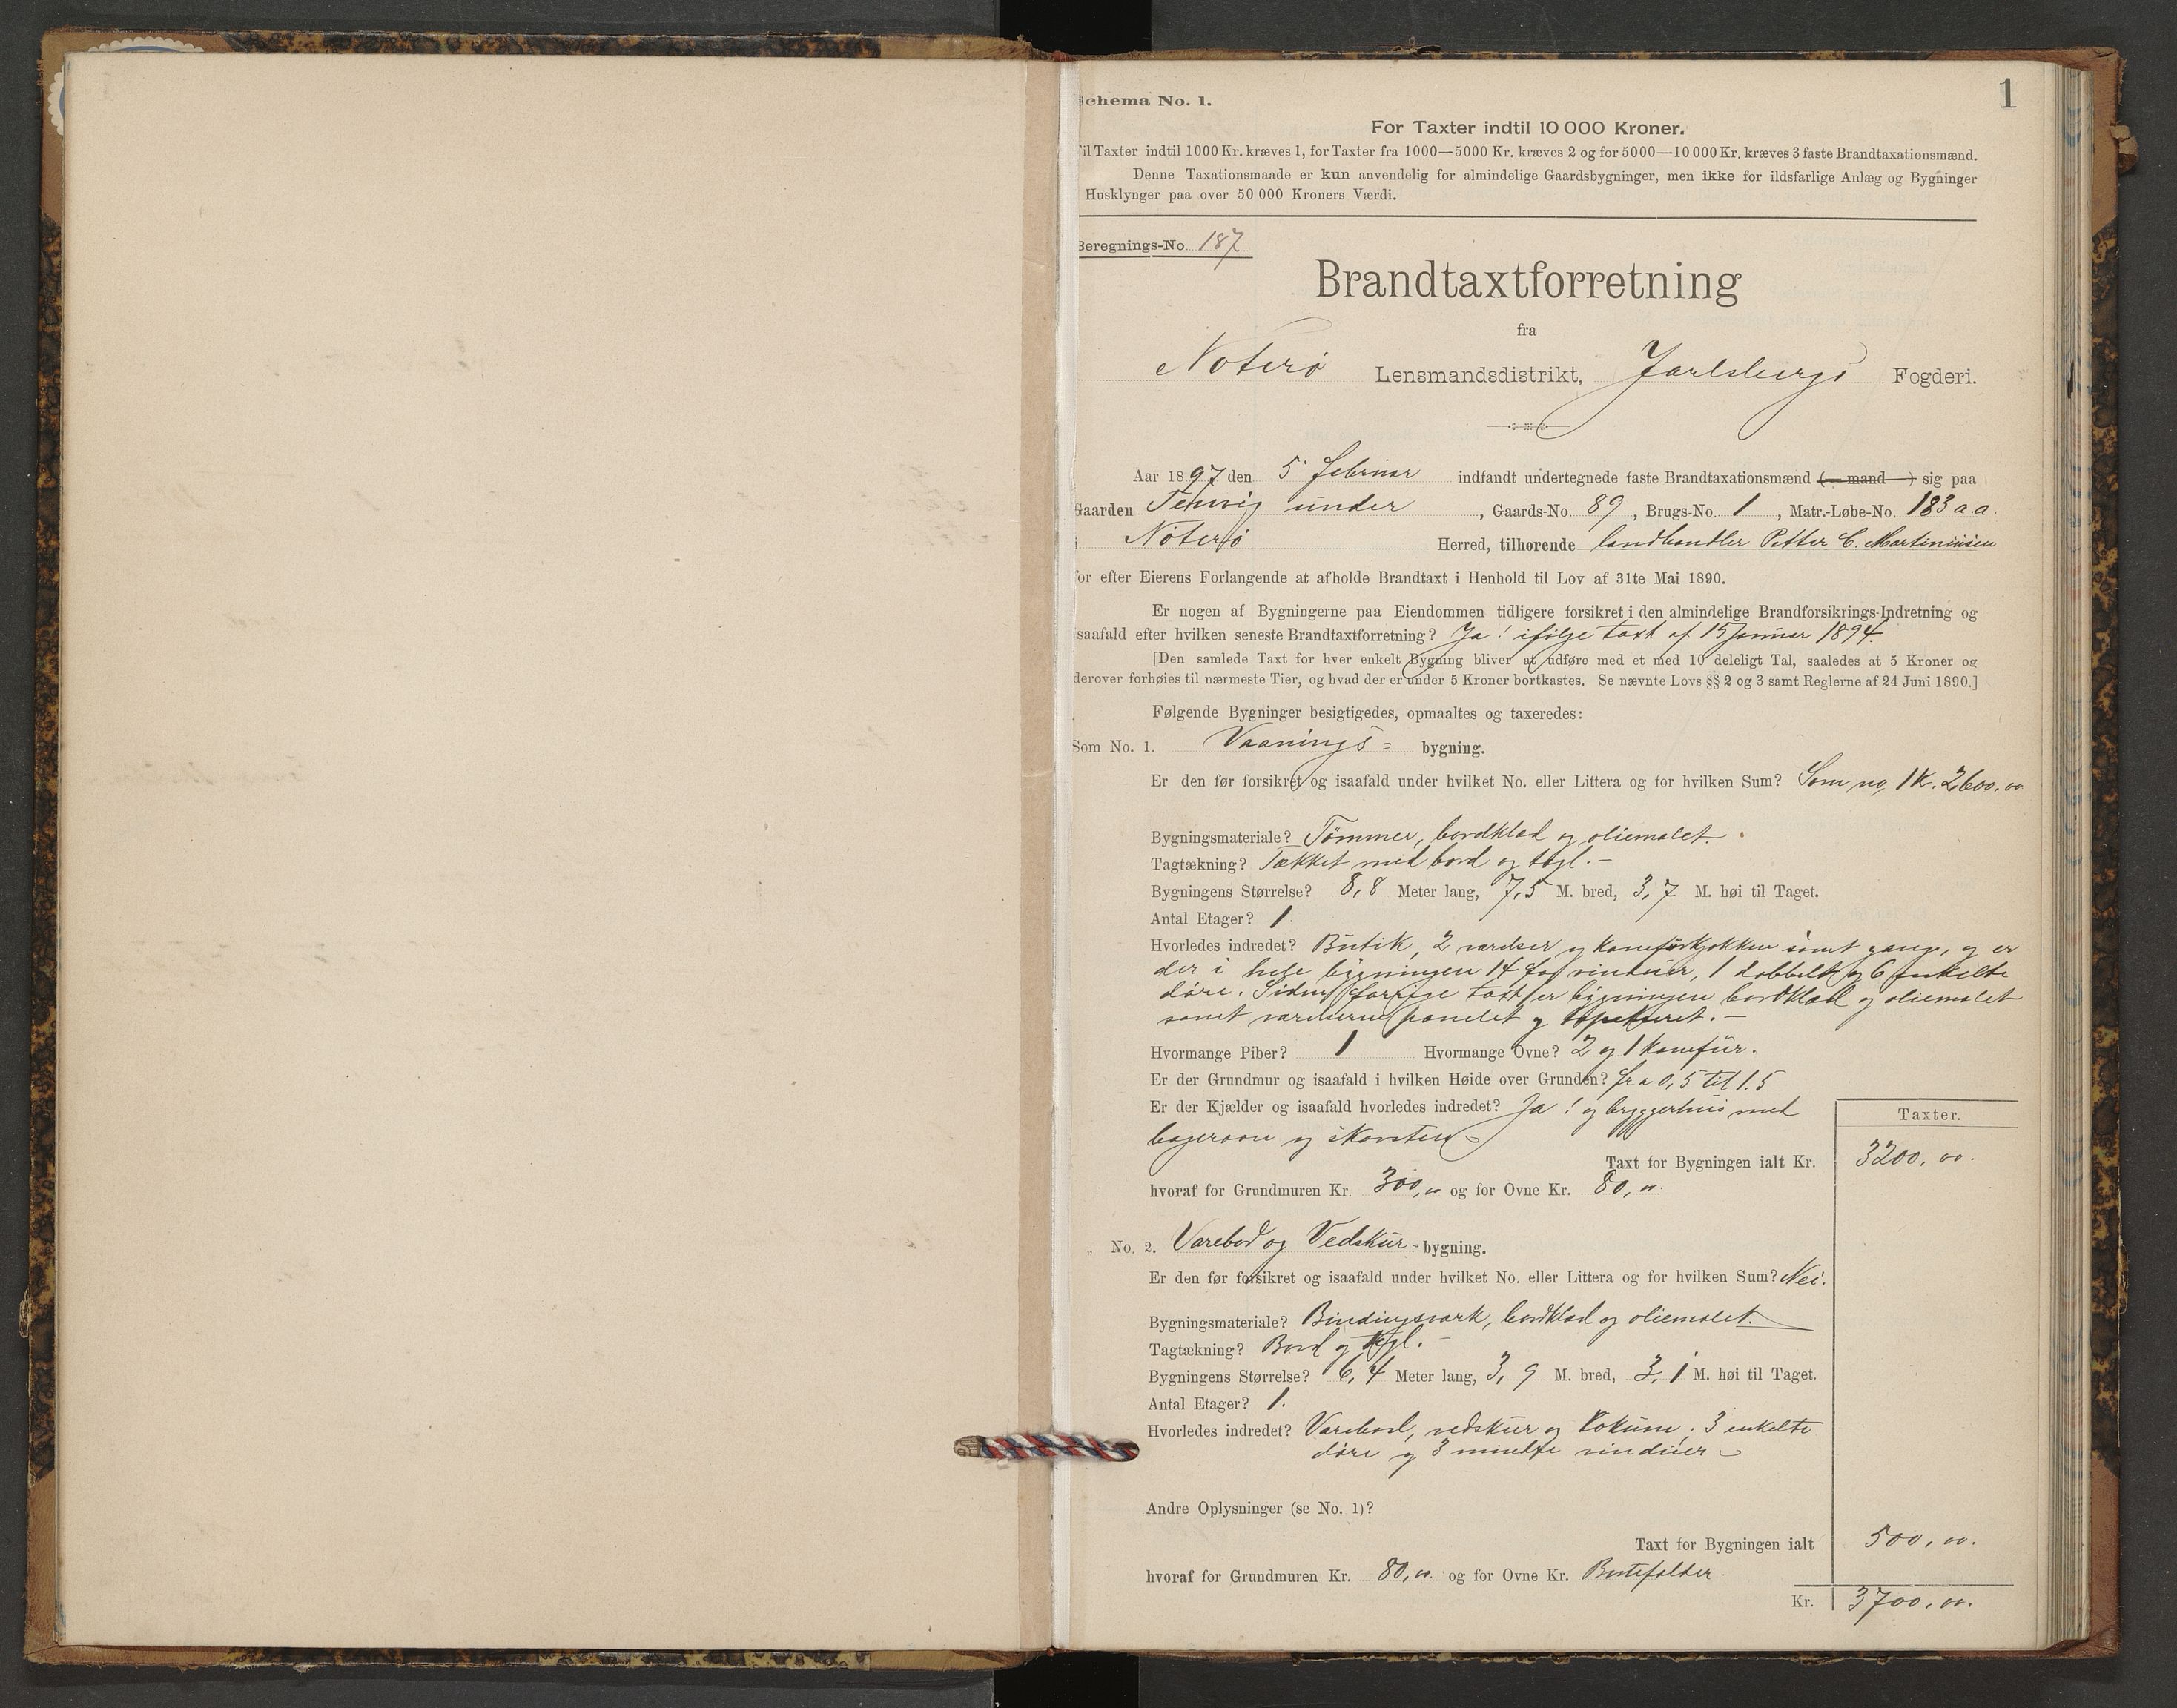 1
Schema No. 1.
For Taxter indtil 10 000 Kroner.
Til Taxter indtil 1000 Kr. kræves 1, for Taxter fra 1000—5000 Kr. kræves 2 og for 5000—10 000 Kr. kræves 3 faste Brandtaxationsmænd.
Denne Taxationsmaade er kun anvendelig for almindelige Gaardsbygninger, men ikke for ildsfarlige Anlæg og Bygninger
Husklynger paa over 50 000 Kroners Værdi.
Beregnings-No. 187
Brandtaxtforretning
fra
Noterø Lensmandsdistrikt, Jarlsbergs Fogderi.
Aar 1897 den 5 februar indfandt undertegnede faste Brandtaxationsmænd (— mand —) sig paa
Gaarden Tenvig under , Gaards-No. 89, Brugs-No. 1, Matr.-Løbe-No. 183 a.a.
i Nøterø Herred, tilhørende landhandler Petter C. Martiniusen
for efter Eierens Forlangende at afholde Brandtaxt i Henhold til Lov af 31te Mai 1890.
Er nogen af Bygningerne paa Eiendommen tidligere forsikret i den almindelige Brandforsikrings-Indretning og
isaafald efter hvilken seneste Brandtaxtforretning? Ja! ifølge taxt af 15 Januar 1894.
[Den samlede Taxt for hver enkelt Bygning bliver at udføre med et med 10 deleligt Tal, saaledes at 5 Kroner og
derover forhøies til nærmeste Tier, og hvad der er under 5 Kroner bortkastes. Se nævnte Lovs §§ 2 og 3 samt Reglerne af 24 Juni 1890.]
Følgende Bygninger besigtigedes, opmaaltes og taxeredes:
Som No. 1. Vaanings= bygning.
Er den før forsikret og isaafald under hvilket No. eller Littera og for hvilken Sum? Som no, 1 K. 2600.00
Bygningsmateriale? Tømmer, bordklæd og oliemalet.
Tagtækning? Tækket med bord og tegl. —
Bygningens Størrelse? 8,8 Meter lang, 7,5 M. bred, 3,7 M. høi til Taget.
Antal Etager? 1.
Hvorledes indredet? Butik, 2 værelser og komfurkjøkken samt gang, og er
der i hele bygningen 14 fag vinduer, 1 dobbelt og 6 enkelte
døre. Siden forrige taxt er bygningen bordklæd og oliemalet
samt værelserne panelet og tapetseret. —
Hvormange Piber? 1 Hvormange Ovne? 2 og 1 komfur.
Er der Grundmur og isaafald i hvilken Høide over Grunden? fra 0,5 til 1.5
Er der Kjælder og isaafald hvorledes indredet? Ja! og bryggerhus med
bagerovn og skorsten
Taxter.
Taxt for Bygningen ialt Kr. 3200,00.
hvoraf for Grundmuren Kr. 300,00 og for Ovne Kr. 80,00.
„ No. 2. Varebod og Vedskur-bygning.
Er den før forsikret og isaafald under hvilket No. eller Littera og for hvilken Sum? Nei.
Bygningsmateriale? Bindingsværk, bordklæd og oliemalet.
Tagtækning? Bord og tegl. —
Bygningens Størrelse? 6,4 Meter lang, 3,9 M. bred, 3,1 M. høi til Taget.
Antal Etager? 1.
Hvorledes indredet? Varebod, vedskur og Lokum, 3 enkelte
døre og 3 mindre vinduer
Andre Oplysninger (se No. 1)?
Taxt for Bygningen ialt 500,00.
hvoraf for Grundmuren Kr. 80,00 og for Ovne Kr. Bortfalder
Kr. 3700,00.